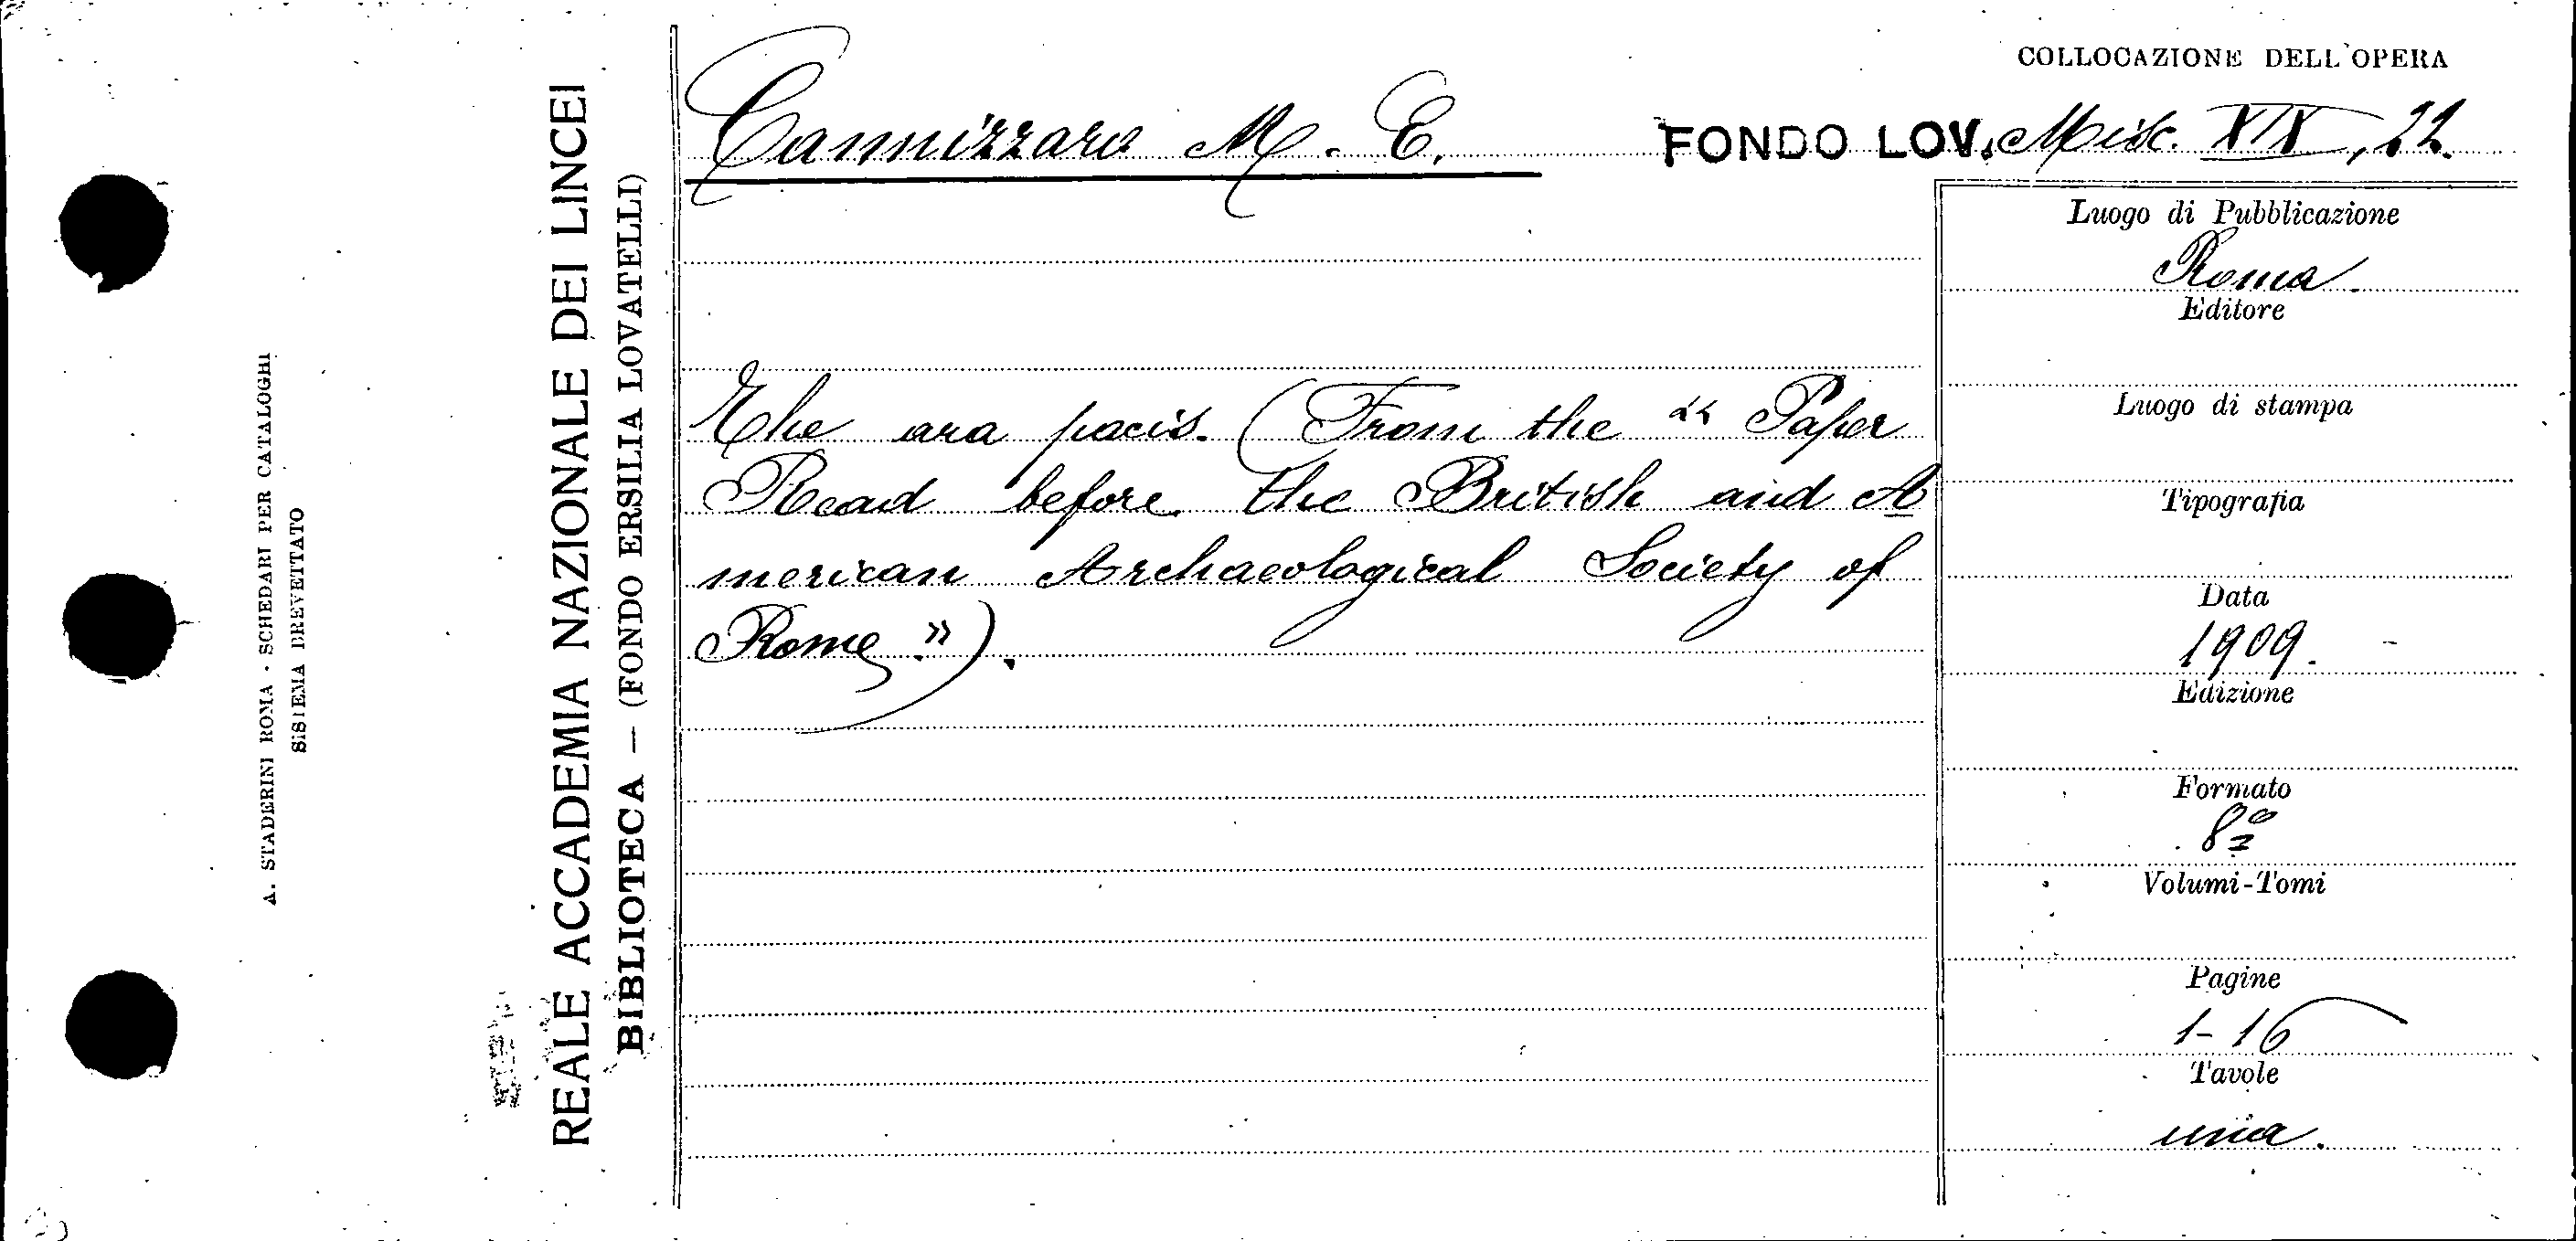 COLLOCAZIONE DELL'OPERA
Cannizzaro M. E.
FONDO LOV. Misc. XIX, 22.
The ara pacis. (From the “ Paper
Read before the British and A
merican Archaeological Society of
Rome ”).
Luogo di Pubblicazione
Roma.
Editore
Luogo di stampa
Tipografia
Data
1909.
Edizione
Formato
8º
Volumi-Tomi
Pagine
1-16
Tavole
una.
REALE ACCADEMIA NAZIONALE DEI LINCEI
BIBLIOTECA — (FONDO ERSILIA LOVATELLI)
A. STADERINI ROMA - SCHEDARI PER CATALOGHI
SISTEMA BREVETTATO